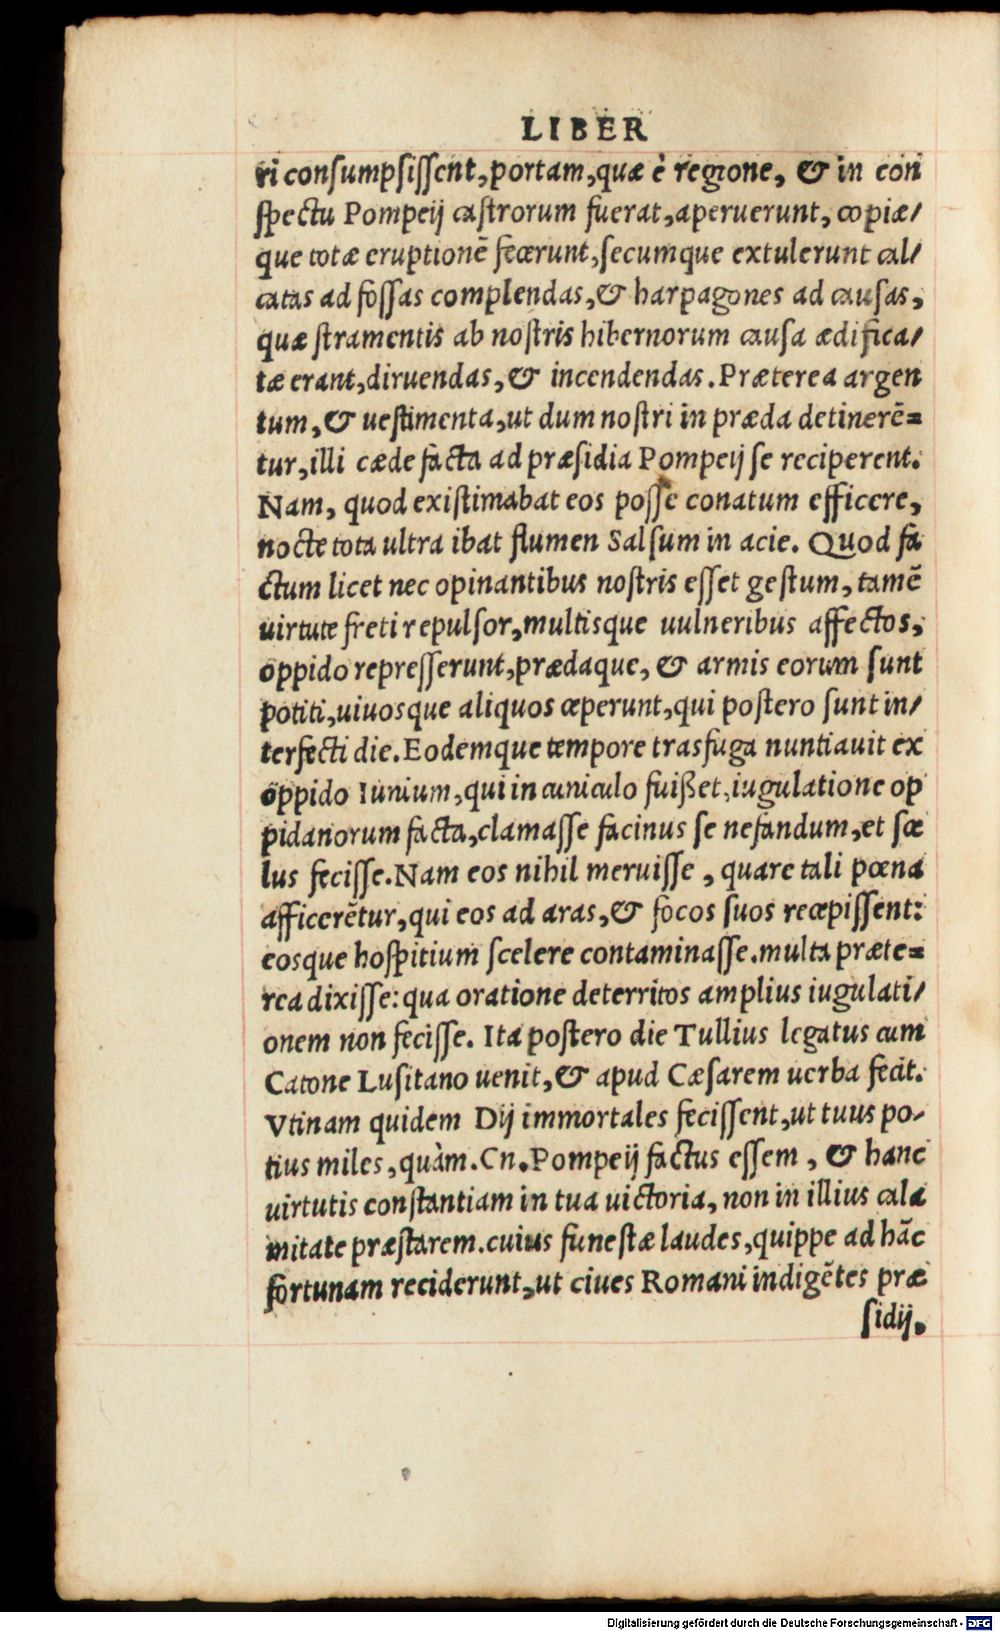 LIBER
ri consumpsissent, portam, quæ è regione, & in con
spectu Pompeij castrorum fuerat, aperuerunt, copiæ/
que totæ eruptionē fecerunt, secumque extulerunt cal/
catas ad fossas complendas, & harpagones ad causas,
quæ stramentis ab nostris hibernorum causa ædifica/
tæ erant, diruendas, & incendendas. Præterea argen
tum, & uestimenta, ut dum nostri in præda detinerē=
tur, illi cæde facta ad præsidia Pompeij se reciperent.
Nam, quod existimabat eos posse conatum efficere,
nocte tota ultra ibat flumen Salsum in acie. Quod fa
ctum licet nec opinantibus nostris esset gestum, tamē
uirtute freti repulsor, multisque uulneribus affectos,
oppido represserunt, prædaque, & armis eorum sunt
potiti, uiuosque aliquos ceperunt, qui postero sunt in/
terfecti die. Eodemque tempore trasfuga nuntiauit ex
oppido Iunium, qui in cuniculo fuißet, iugulatione op
pidanorum facta, clamasse facinus se nefandum, et sce
lus fecisse. Nam eos nihil meruisse, quare tali pœna
afficerētur, qui eos ad aras, & focos suos recepissent:
eosque hospitium scelere contaminasse. multa præte=
rea dixisse: qua oratione deterritos amplius iugulati/
onem non fecisse. Ita postero die Tullius legatus cum
Catone Lusitano uenit, & apud Cæsarem uerba fecit.
Vtinam quidem Dij immortales fecissent, ut tuus po/
tius miles, quàm. Cn. Pompeij factus essem, & hanc
uirtutis constantiam in tua uictoria, non in illius cala
mitate præstarem. cuius funestæ laudes, quippe ad hāc
fortunam reciderunt, ut ciues Romani indigētes præ
sidij.
Digitalisierung gefördert durch die Deutsche Forschungsgemeinschaft - DFG